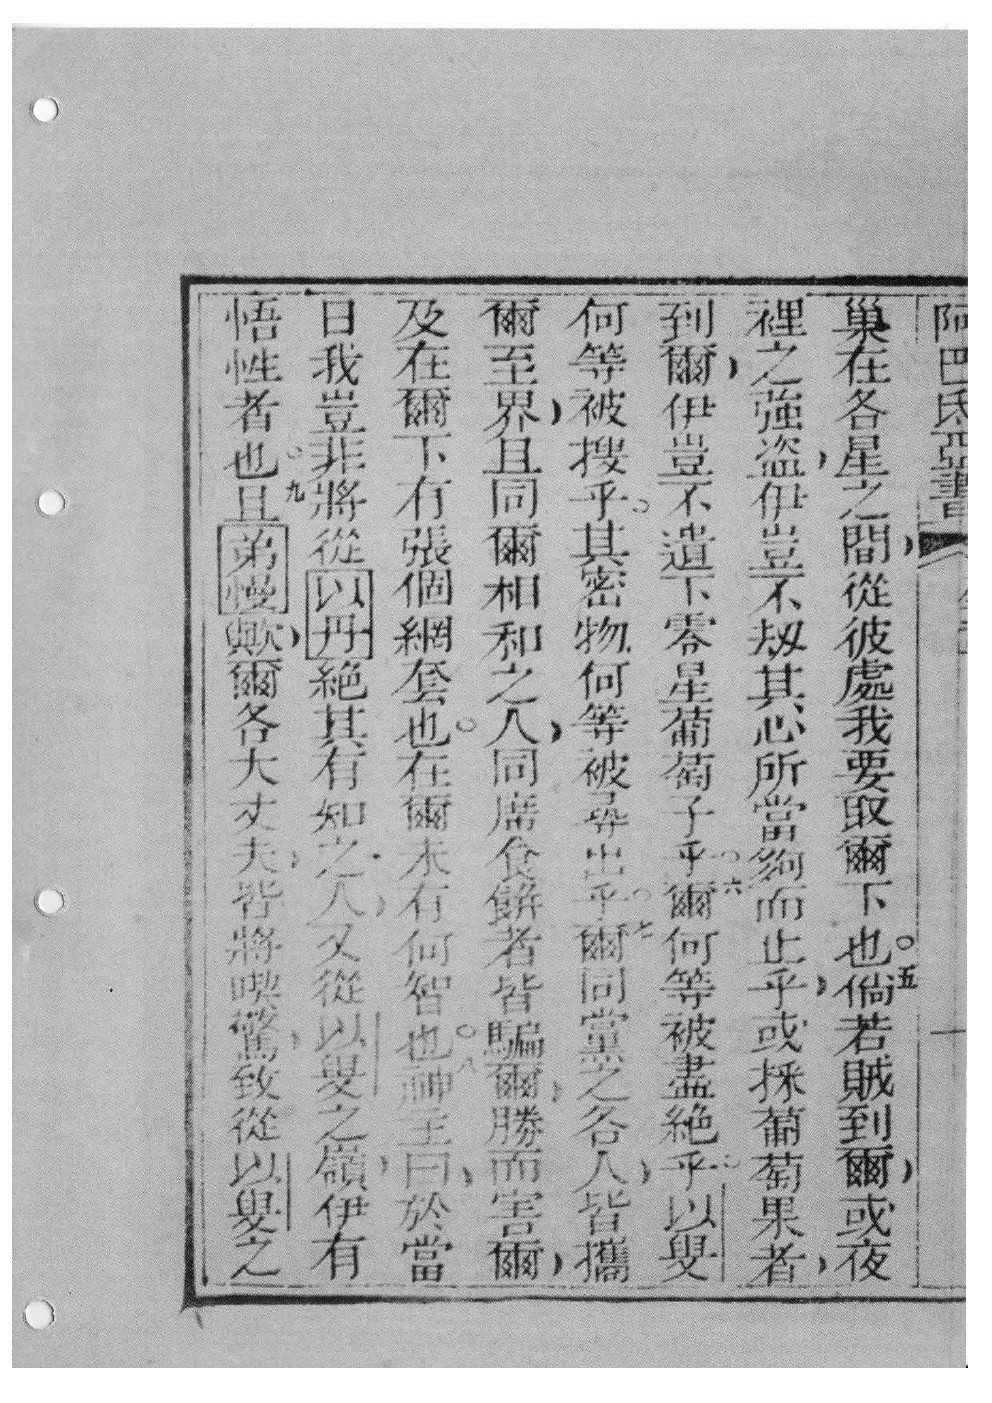 阿巴氐亞書
巢在各星之間從彼處我要取爾下也。五倘若賊到爾或夜
裡之強盜伊豈不刼其心所當夠而止乎或採葡萄果者
到爾伊豈不遺下零星葡萄子乎。六爾何等被盡絕乎。以叟
何等被搜乎。其密物何等被尋出乎。七爾同黨之各人皆攜
爾至界且同爾相和之人同席食餅者皆騙爾勝而害爾
及在爾下有張個網套也。在爾未有何智也。八神主曰於當
日我豈非將從以丹絕其有知之人又從以叟之嶺伊有
悟性者也。九且弟慢歟爾各大丈夫皆將喫驚致從以叟之